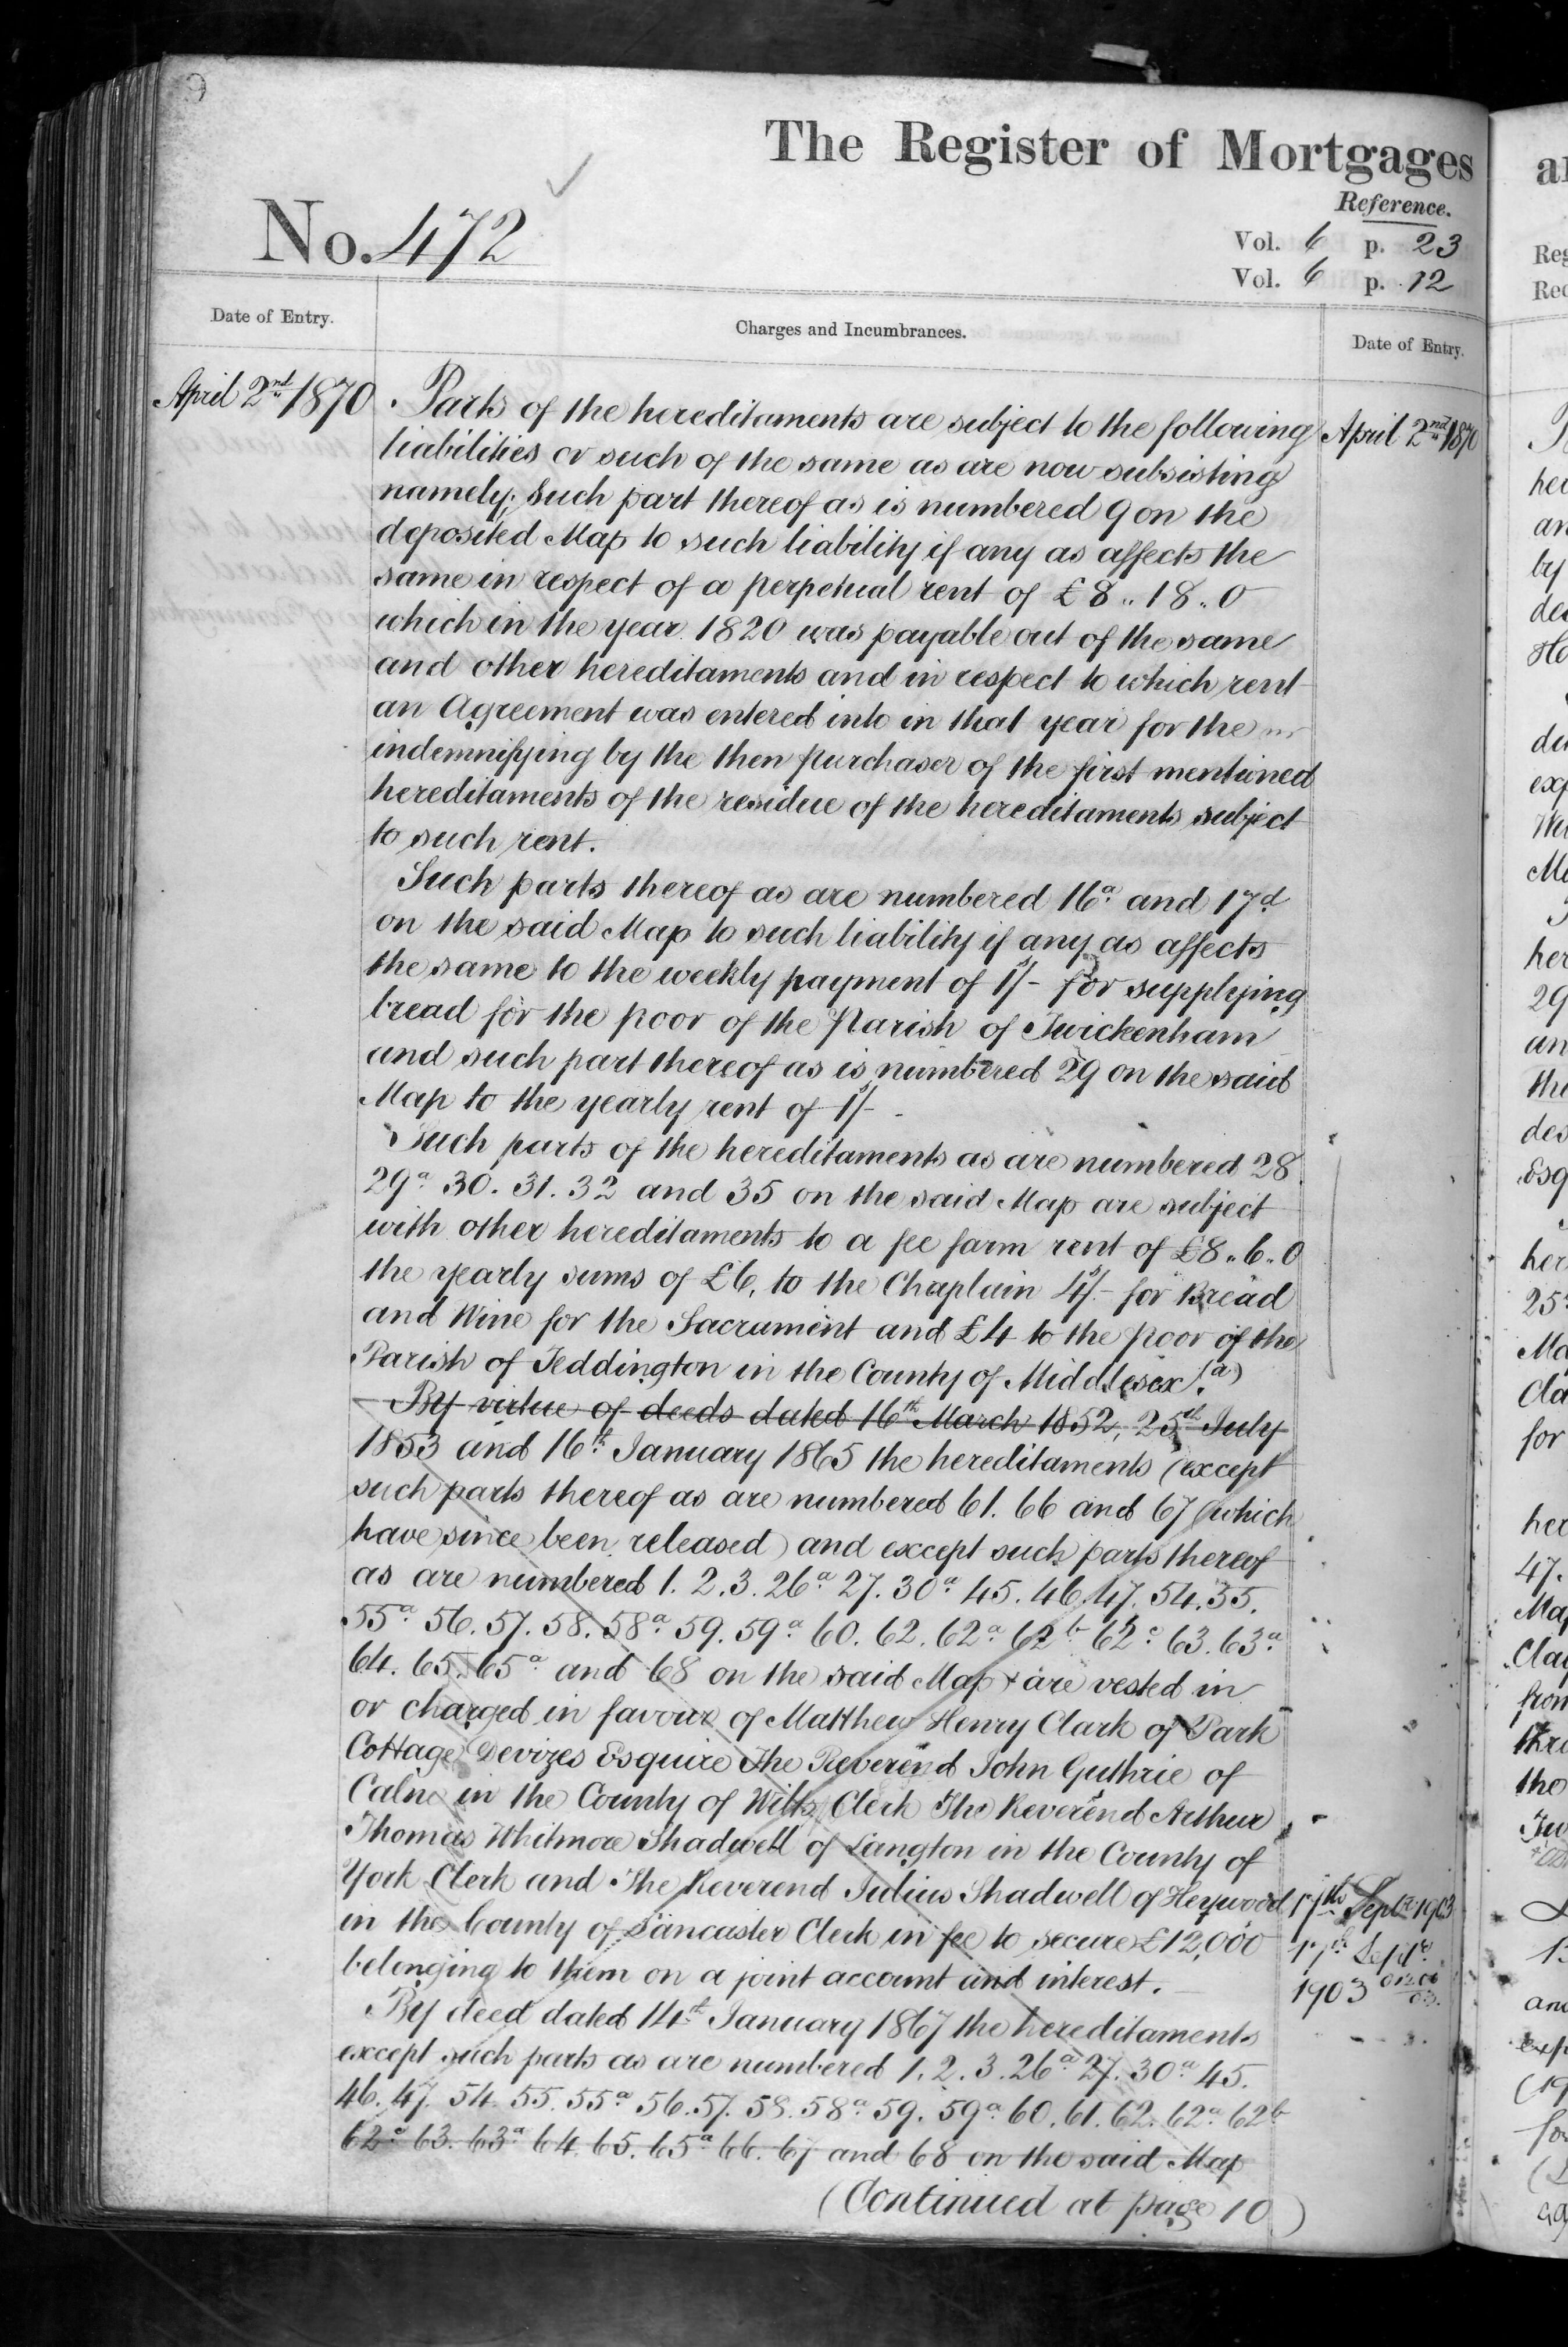 9
The Register of Mortgages
No. 472
Reference.
Vol. 6 p. 23
Vol. 6 p. 12
Date of Entry.
Charges and Incumbrances.
Date of Entry.
April 2nd 1870
Parts of the hereditaments are subject to the following
April 2nd 1870
liabilities or such of the same as are now subsisting
namely; Such part thereof as is numbered 9 on the
deposited Map to such liability if any as affects the
same in respect of a perpetual rent of £8..18..0
which in the year 1820 was payable out of the same
and other hereditaments and in respect to which rent
an Agreement was entered into in that year for the
indemnifying by the then purchaser of the first mentioned
hereditaments of the residue of the hereditaments subject
to such rent.
Such parts thereof as are numbered 16a and 17d
on the said Map to such liability if any as affects
the same to the weekly payment of 1s/- for supplying
bread for the poor of the Parish of Twickenham
and such part thereof as is numbered 29 on the said
Map to the yearly rent of 1s/-
Such parts of the hereditaments as are numbered 28
29a 30. 31. 32 and 35 on the said Map are subject
with other hereditaments to a fee farm rent of £8..6..0
the yearly sums of £6, to the Chaplain 4s/- for Bread
and Wine for the Sacrament and £4 to the poor of the
Parish of Teddington in the County of Middlesex. (a)
By virtue of deeds dated 16th March 1852, 25th July
1853 and 16th January 1865 the hereditaments (except
such parts thereof as are numbered 61. 66 and 67 (which
have since been released) and except such parts thereof
as are numbered 1. 2. 3. 26a 27. 30a 45. 46. 47. 54. 35.
55a 56. 57. 58. 58a 59. 59a 60. 62. 62a 62b 62c 63. 63a
64. 65. 65a and 68 on the said Map + are vested in
or charged in favour of Matthew Henry Clark of Park
Cottage Devizes Esquire The Reverend John Guthrie of
Calne in the County of Wilts Clerk The Reverend Arthur
Thomas Whitmore Shadwell of Langton in the County of
York Clerk and The Reverend Julius Shadwell of Heywood
17th Septr 1903
in the County of Lancaster Clerk in fee to secure £12,000
17th Septr
belonging to them on a joint account and interest.
1903
By deed dated 14th January 1867 the hereditaments
except such parts as are numbered 1. 2. 3. 26a 27. 30a 45.
46. 47. 54. 55. 55a 56. 57. 58. 58a 59. 59a 60. 61. 62. 62a 62b
62c 63. 63a 64. 65. 65a 66. 67 and 68 on the said Map
(Continued at page 10)